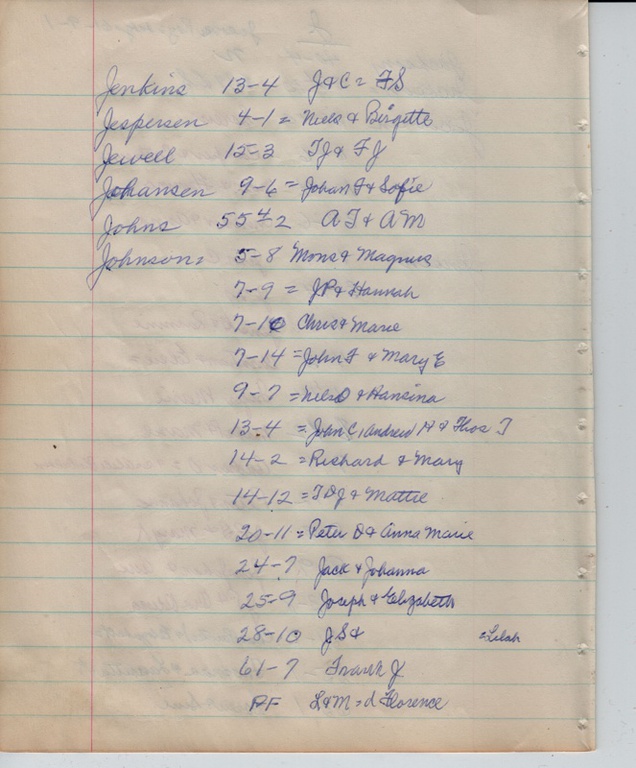 J
Jenkins 13-4 J&C = FS
Jespersen 4-1 = Niels & Birgette
Jewell 15-3 TJ & FJ
Johansen 9-6 = Johan F & Sofie
Johns 55-42 AJ & AM
Johnson = 5-8 Mons & Magnus
7-9 = JP & Hannah
7-10 Chris & Marie
7-14 = John F & Mary E
9-7 = Nels O & Hansina
13-4 = John C, Andrew & Thos J
14-2 = Richard & Mary
14-12 = & Mattie
20-11 = Peter O & Anna Marie
24-7 Jack & Johanna
25-9 Joseph & Elizabeth
28-10 J.S & = Lilah
61-7 Frank J
PF L & M = d Florence